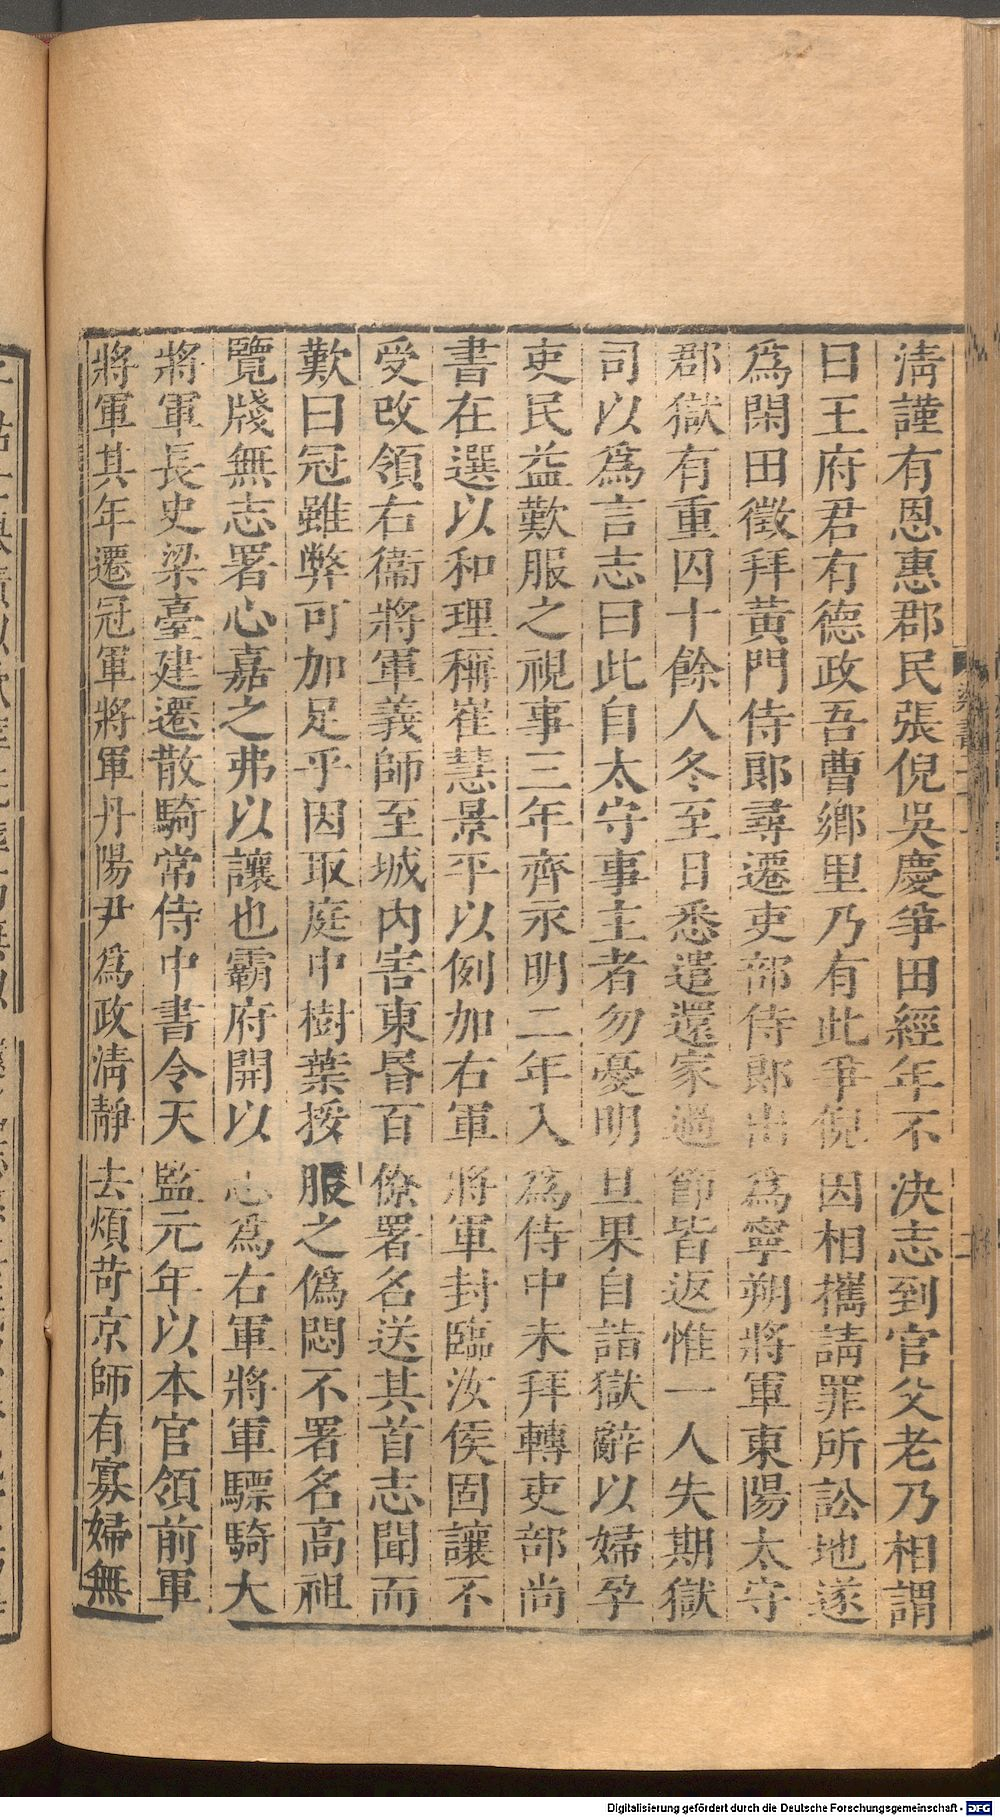 淸謹有恩惠郡民張倪吳慶爭田經年不決志到官父老乃相謂
曰王府君有德政吾曹鄉里乃有此爭倪因相攜請罪所訟地遂
爲閑田徵拜黃門侍郞尋遷吏部侍郞出爲寧朔將軍東陽太守
郡獄有重囚十餘人冬至日悉遣還家過節皆返惟一人失期獄
司以爲言志曰此自太守事主者勿憂明旦果自詣獄辭以婦孕
吏民益歎服之視事三年齊永明二年入爲侍中未拜轉吏部尚
書在選以和理稱崔慧景平以例加右軍將軍封臨汝侯固讓不
受改領右衞將軍義師至城内害東昬百僚署名送其首志聞而
歎曰冠雖弊可加足乎因取庭中樹葉挼服之僞悶不署名高祖
覽牋無志署心嘉之弗以讓也霸府開以志爲右軍將軍驃騎大
將軍長史梁臺建遷散騎常侍中書令天監元年以本官領前軍
將軍其年遷冠軍將軍丹陽尹爲政淸靜去煩苛京師有寡婦無
Digitalisierung gefördert durch die Deutsche Forschungsgemeinschaft - DFG